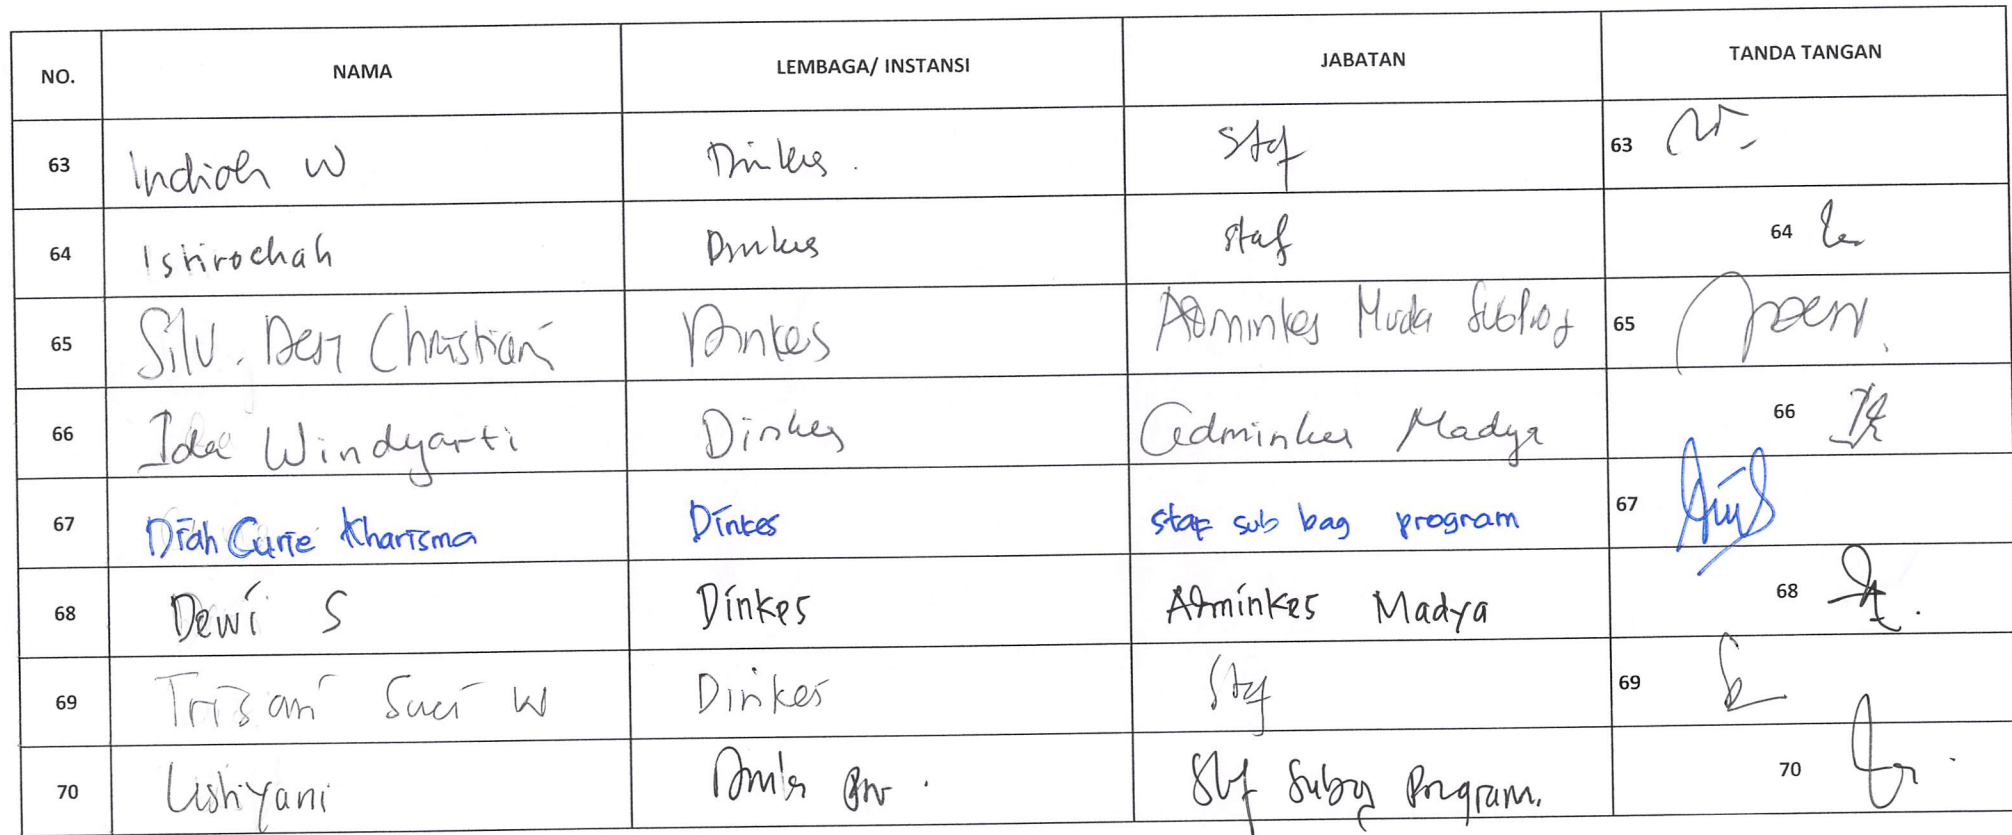 NO. NAMA LEMBAGA/ INSTANSI JABATAN TANDA TANGAN
63 Indiah W Dinkes. Staf 63
64 Istirochah Dinkes staf 64
65 Silv. Desi Christiani Dinkes Adminkes Muda Subprog 65
66 Ida Windyarti Dinkes Adminkes Madya 66
67 Diah Curie Kharisma Dinkes staf sub bag program 67
68 Dewi S Dinkes Adminkes Madya 68
69 Trisani Suci W Dinkes Staf 69
70 Ushiyani Staf Subag Program. 70